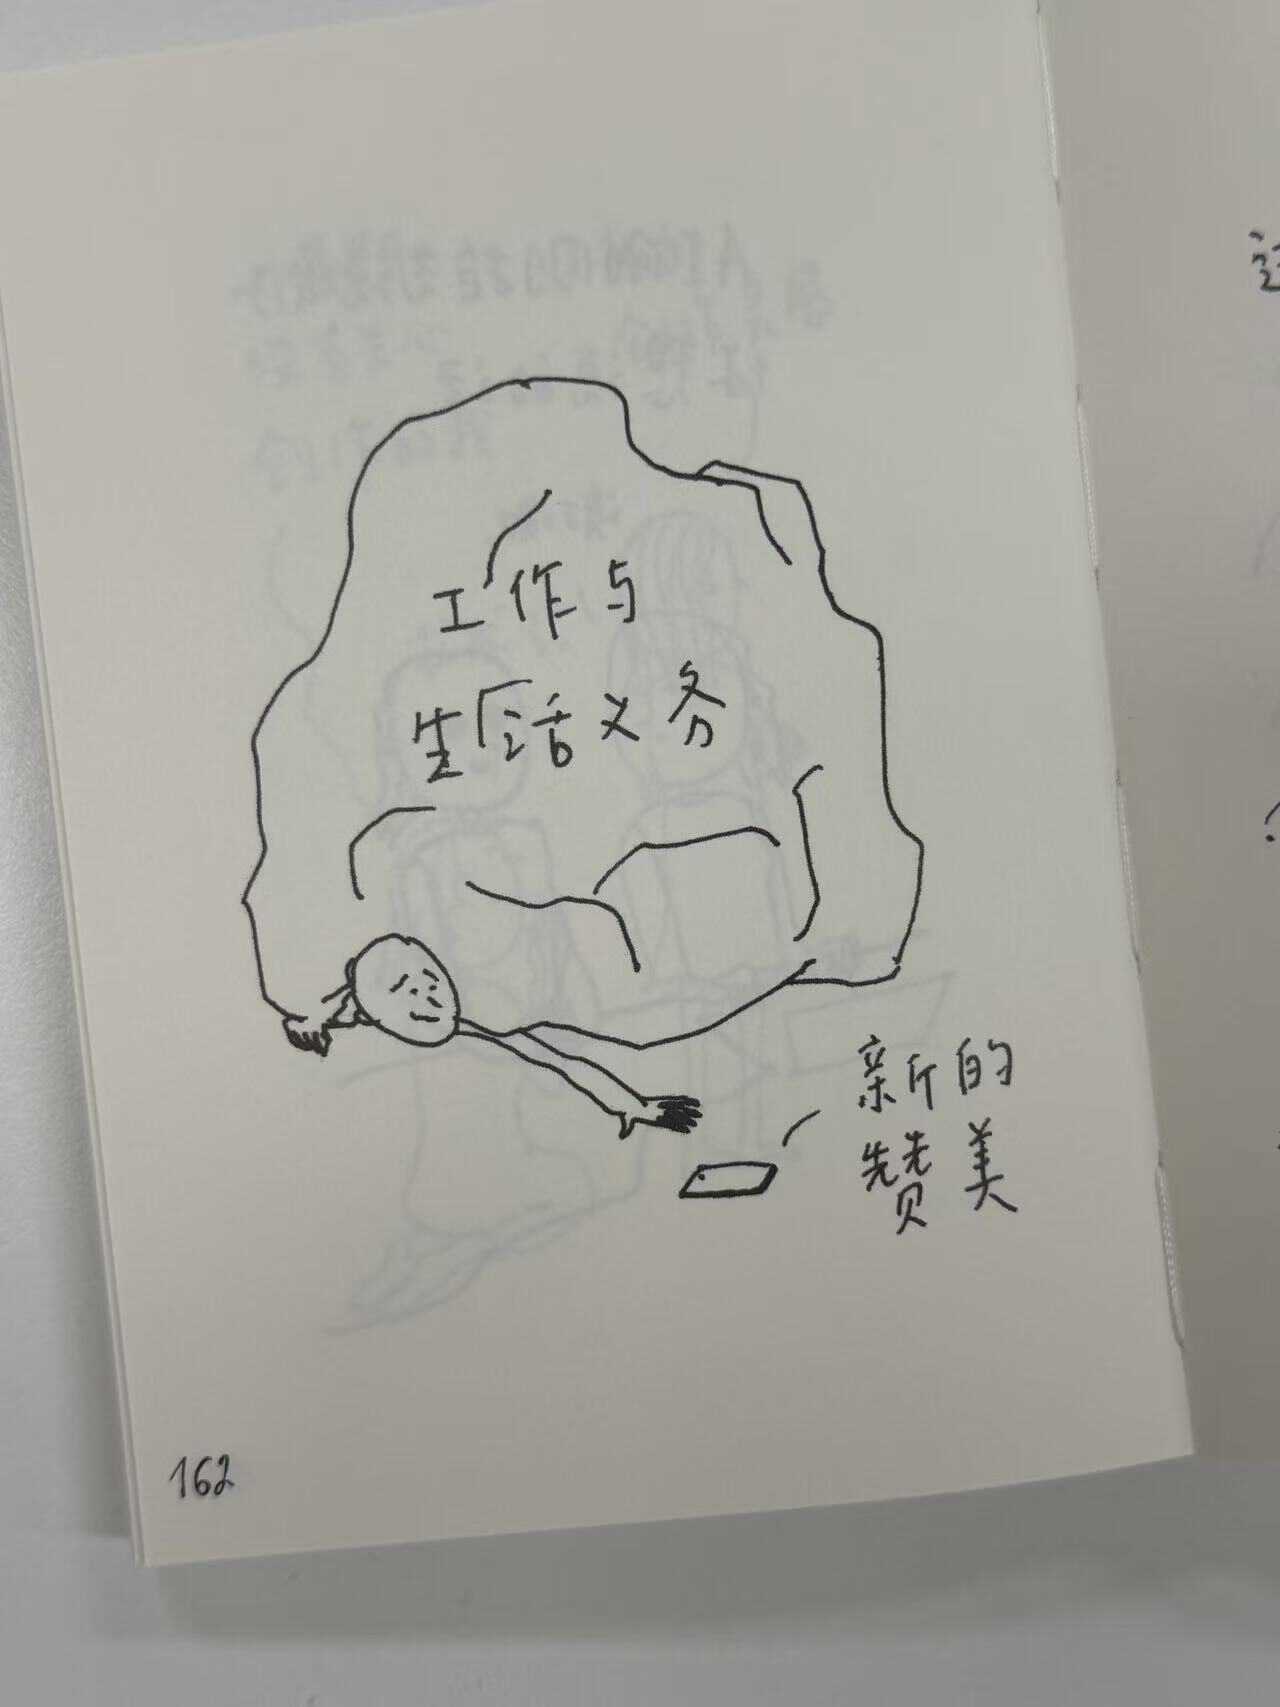 工作与
生活义务
新的
赞美
162